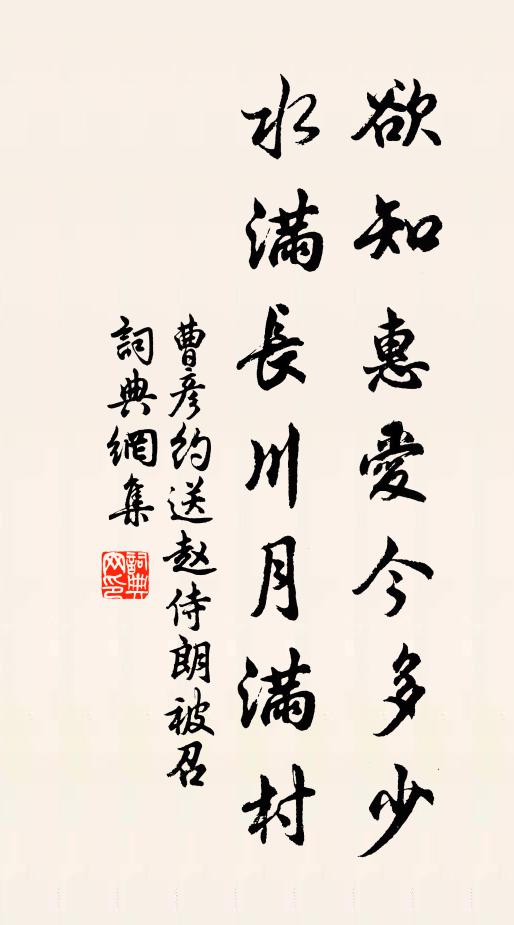 欲知惠愛今多少
水滿長川月滿村
曹彦約送赵侍朗被召
詞典網集
詞典网印